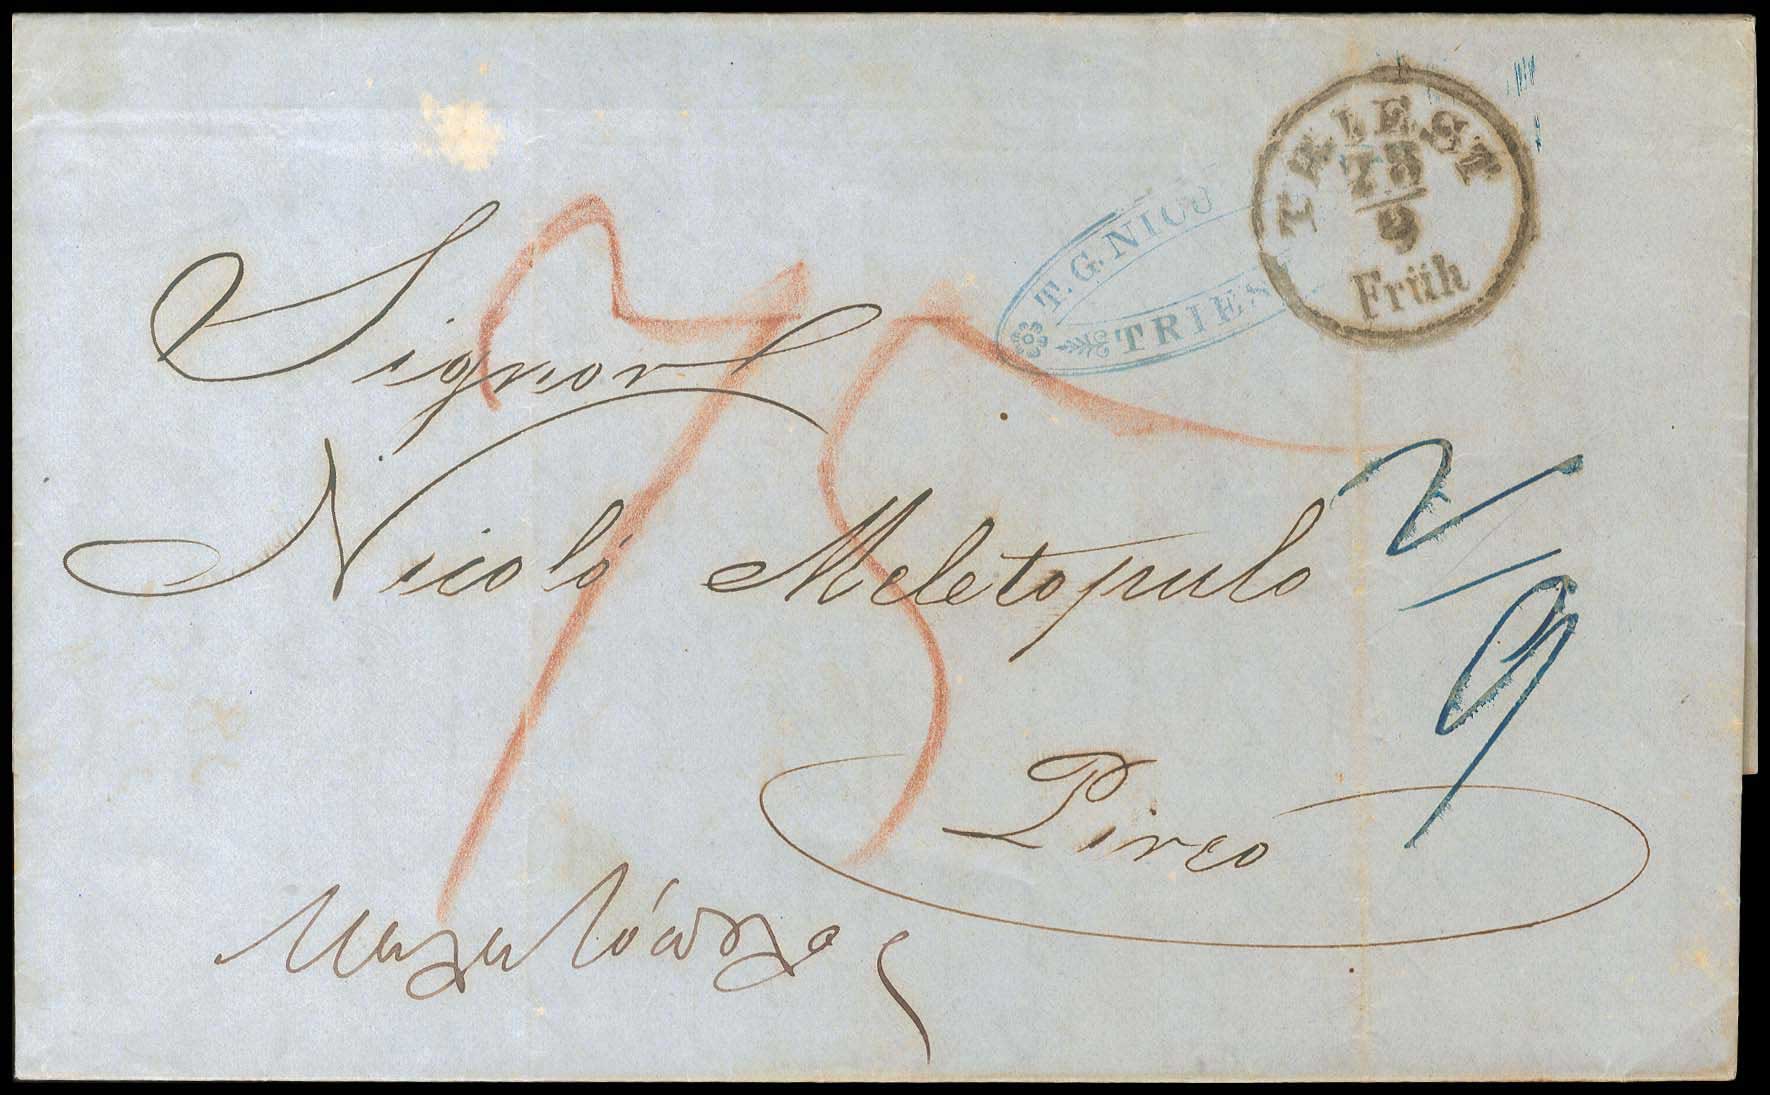 TRIEST
23
9
Früh
T. G. NICO
TRIES
Signor
Nicoló Meletopulo
Pireo
75
2/9